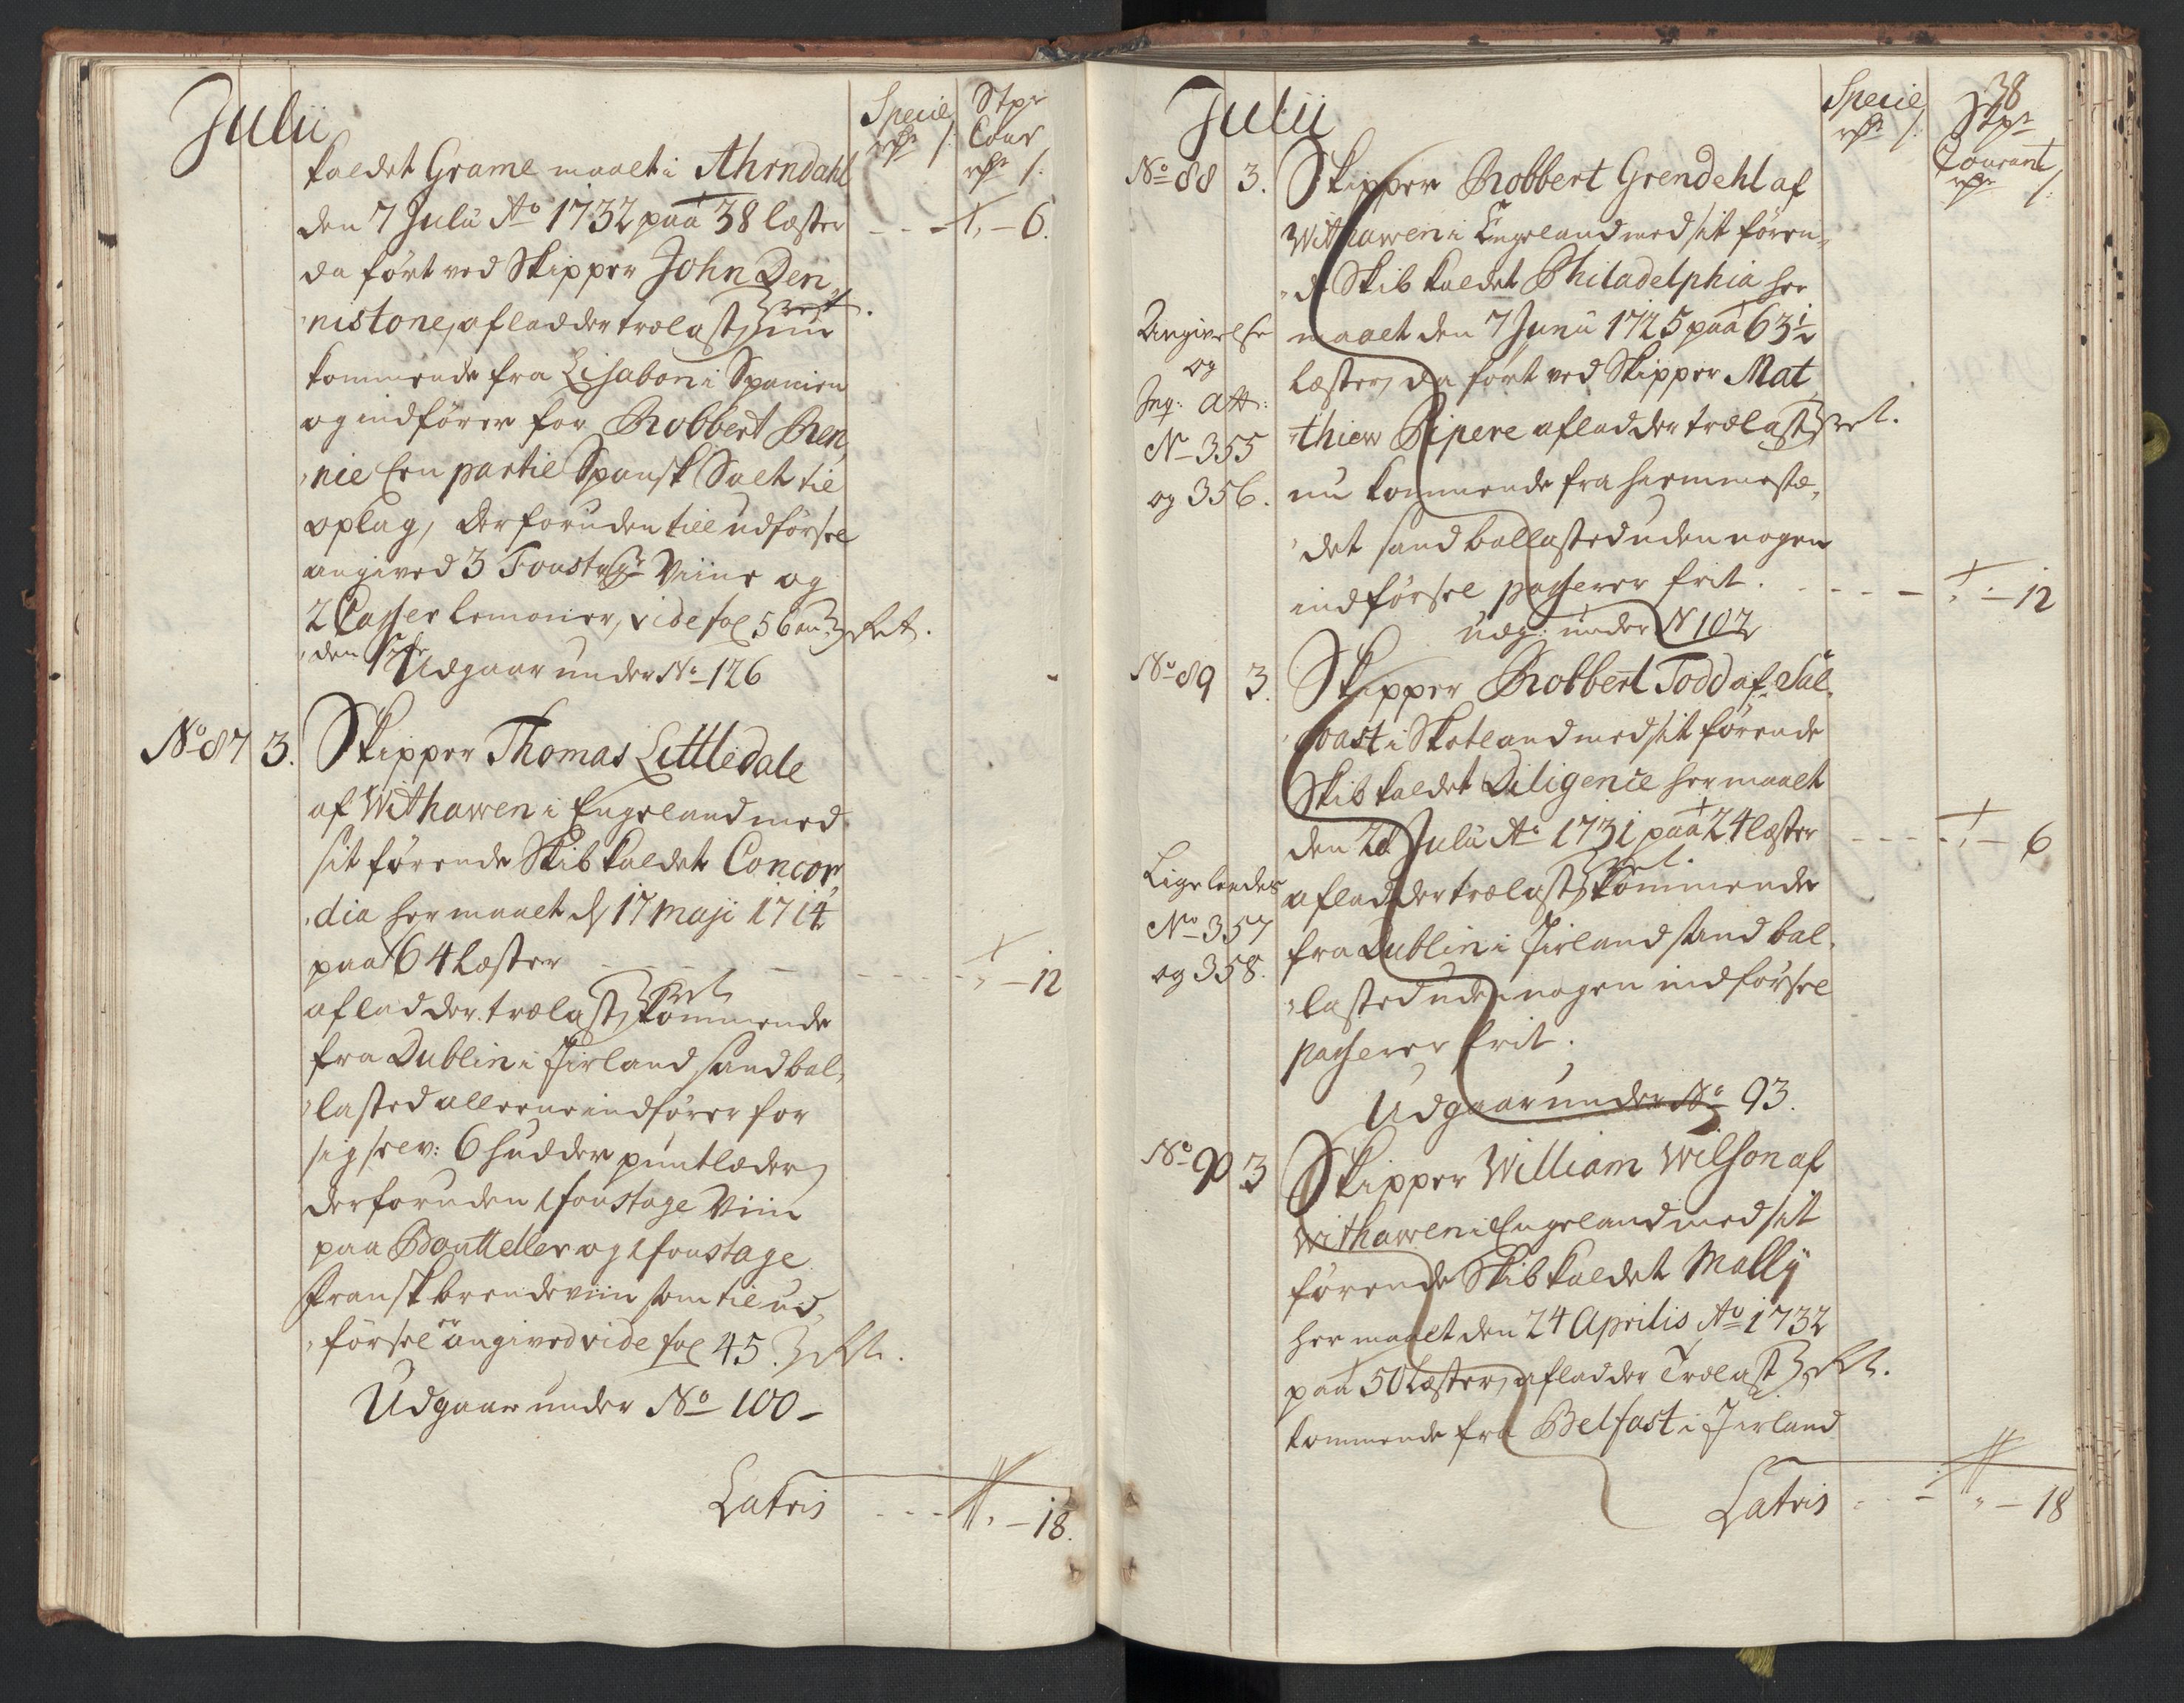 Julii
Specie
rdr /:
Stpr
Cour
rdr /:
kaldet Grame maalt i Ahrndahl
den 7 Julii Ao 1732 paa 38 læster - - - 1, - 6.
da ført ved Skipper John Den,,
"nistone, aflad der trælast, nu
kommende fra Lisabon i Spanien
og indfører for Robbert Ren,,
"nie Een partie Spansk Salt til
oplag, derforuden till udførsel
angived 3 Foustager Viine og
2 Casser lemonier, vide fol 56
Udgaar under No 126
No 87 3. Skipper Thomas Littledale
af Withawen i Engeland med
sit førende Skib kaldet Concor,,
"dia her maalt d 17 Maji 1714
paa 64 Læster - - - - " - 12
aflad der trælast, kommende
fra Dublin i Jirland sand bal,,
"lasted alleene indfører for
sig selv: 6 hudder puntlæder,
derforuden 1 foustage Viin
paa Boutteller og 1 foustage
fransk brendeviin som til ud,,
"førsel er angived vide fol 45.
Udgaar under No 100 -
Latris - - - " - 18.
38
Julii
Specie
rdr /:
Stpr
Courant
rdr /:
No 88 3. Skipper Robbert Grendehl af
Withawen i Engeland med sit føren,,
"de Skib kaldet Philadelphia her
maalt den 7 Junii 1725 paa 63½
Læster, da ført ved Skipper Mat
"thiew Pipere aflad der trælast
nu kommende fra hiemmestæ,,
"det sand ballasted uden nogen
indførsel passerer frit. - - - - " - 12
Udg: under N 102
Angivelse
og
Inq: Att:
No 355
og 356.
No 89 3. Skipper Robbert Todd af Sal,,
"coast i Skotland med sit førende
Skib kaldet Diligence her maalt
den 21 Julii Ao 1731 paa 24 læster - - - - " - 6
aflad der trælast, kommende
fra Dublin i Jirland sand bal,,
"lasted uden nogen indførsel
passerer frit.
Udgaar under No 93.
Ligeleedes
No 357
og 358.
No 90 3 Skipper William Wilson af
Withawen i Engeland med sit
førende Skib kaldet Mally
her maalt den 24 Aprilis Ao 1732
paa 50 Læster, aflad der Trælast
kommende fra Belfast i Jirland
Latris - - - " - 18